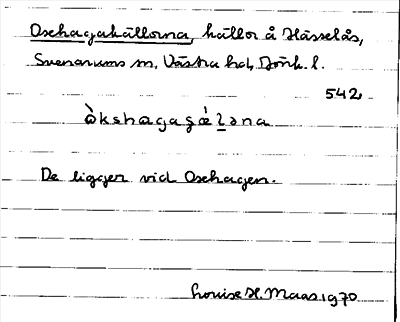 Oxehagakällorna, källor å Hässelås,
Svenarums sn, Västra hd, Jönk. l.
542
òkshagaʂǽləna
De ligger vid Oxehagen.
Louise H. Maas 1970